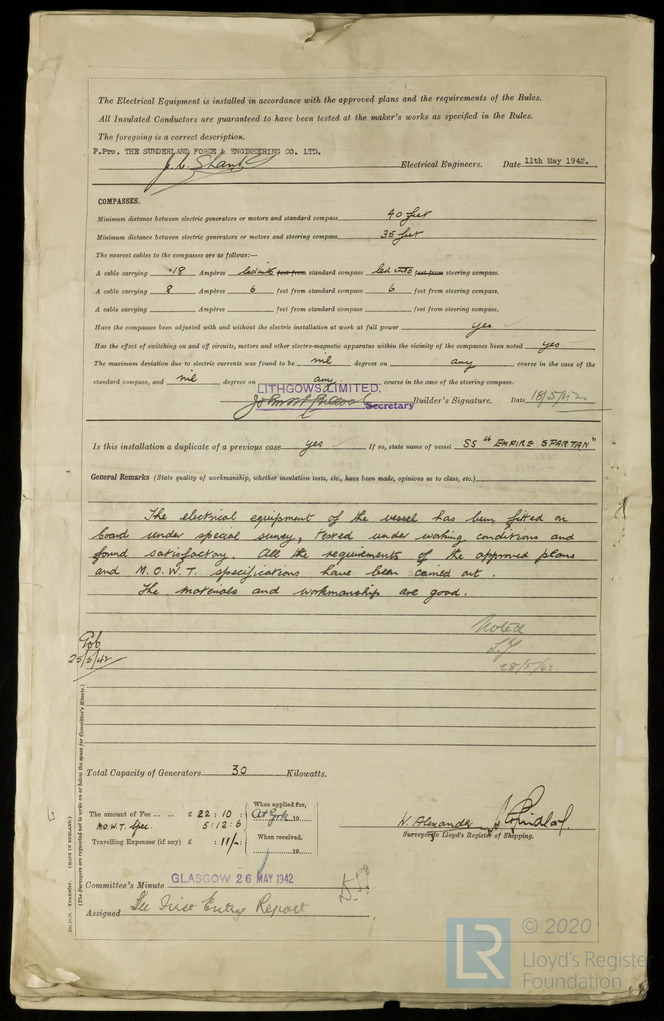 The Electrical Equipment is installed in accordance with the approved plans and the requirements of the Rules.
All Insulated Conductors are guaranteed to have been tested at the maker's works as specified in the Rules.
The foregoing is a correct description.
P.Pro. THE SUNDERLAND FORGE & ENGINEERING CO. LTD.
Electrical Engineers. Date 11th May 1942.
COMPASSES.
Minimum distance between electric generators or motors and standard compass 40 feet
Minimum distance between electric generators or motors and steering compass 35 feet
The nearest cables to the compasses are as follows:—
A cable carrying .18 Ampères led into feet from standard compass led into feet from steering compass.
A cable carrying 8 Ampères 6 feet from standard compass 6 feet from steering compass.
A cable carrying Ampères feet from standard compass feet from steering compass.
Have the compasses been adjusted with and without the electric installation at work at full power yes
Has the effect of switching on and off circuits, motors and other electro-magnetic apparatus within the vicinity of the compasses been noted yes
The maximum deviation due to electric currents was found to be nil degrees on any course in the case of the
standard compass, and nil degrees on any course in the case of the steering compass.
LITHGOWS LIMITED.
Secretary Builder's Signature. Date 18/5/42
Is this installation a duplicate of a previous case yes If so, state name of vessel SS "EMPIRE SPARTAN"
General Remarks (State quality of workmanship, whether insulation tests, etc., have been made, opinions as to class, etc.)
The electrical equipment of the vessel has been fitted on
board under special survey, tested under working conditions and
found satisfactory. All the requirements of the approved plans
and M.O.W.T. specifications have been carried out.
The materials and workmanship are good.
Noted
28/5/42
25/5/42
(The Surveyors are requested not to write on or below the space for Committee's Minute.)
Transfer. (MADE IN ENGLAND.)
Total Capacity of Generators 30 Kilowatts.
The amount of Fee ... ... £ 22 : 10 :
M.O.W.T. Spec. 5 : 12 : 6
Travelling Expenses (if any) £ : 11/- :
When applied for,
19
When received.
19
N. Alexander
Surveyor to Lloyd's Register of Shipping.
Committee's Minute GLASGOW 26 MAY 1942
Assigned See First Entry Report
LR © 2020
Lloyd's Register
Foundation